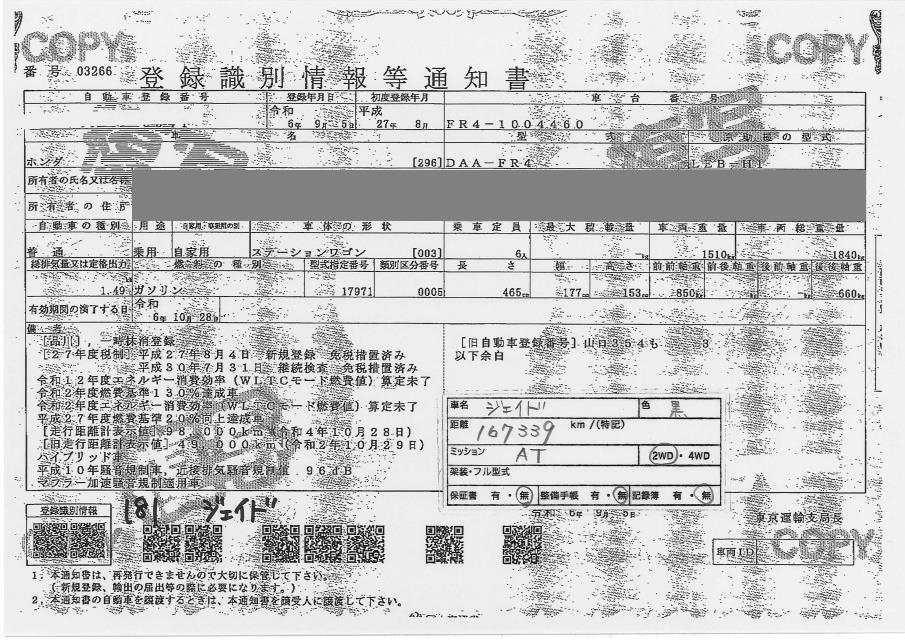 COPY COPY
番号 03266
登録識別情報等通知書
自動車登録番号 登録年月日 初度登録年月 車台番号
令和 6年 9月 5日 平成 27年 8月 FR4-1004460
車名 型式 原動機の型式
ホンダ [296] DAA-FR4 LEB-H1
所有者の氏名又は名称
所有者の住所
自動車の種別 用途 自家用・事業用の別 車体の形状 乗車定員 最大積載量 車両重量 車両総重量
普通 乗用 自家用 ステーションワゴン [003] 6人 -kg 1510kg 1840kg
総排気量又は定格出力 燃料の種別 型式指定番号 類別区分番号 長さ 幅 高さ 前前軸重 前後軸重 後前軸重 後後軸重
1.49 ガソリン 17971 0005 465cm 177cm 153cm 850kg -kg -kg 660kg
有効期間の満了する日 令和 6年 10月 28日
備考
[品川],一時抹消登録
[27年度税制]平成27年8月4日 新規登録 免税措置済み
平成30年7月31日 継続検査 免税措置済み
令和12年度エネルギー消費効率(WLTCモード燃費値)算定未了
令和2年度燃費基準130%達成車
令和2年度エネルギー消費効率(WLTCモード燃費値)算定未了
平成27年度燃費基準20%向上達成車
[走行距離計表示値]98,000km(令和4年10月28日)
[旧走行距離計表示値]49,000km(令和2年10月29日)
ハイブリッド車
平成10年騒音規制車,近接排気騒音規制値 96dB
マフラー加速騒音規制適用車
[旧自動車登録番号]
以下余白
車名 ジェイド 色 黒
距離 167339 km/(特記)
ミッション AT 2WD・4WD
架装・フル型式
保証書 有・無 整備手帳 有・無 記録簿 有・無
令和 6年 9月 5日
181 ジェイド
登録識別情報
東京運輸支局長
車両ID COPY
1.本通知書は、再発行できませんので大切に保管して下さい。
(新規登録、輸出の届出等の際に必要になります。)
2.本通知書の自動車を譲渡するときは、本通知書を譲受人に譲渡して下さい。